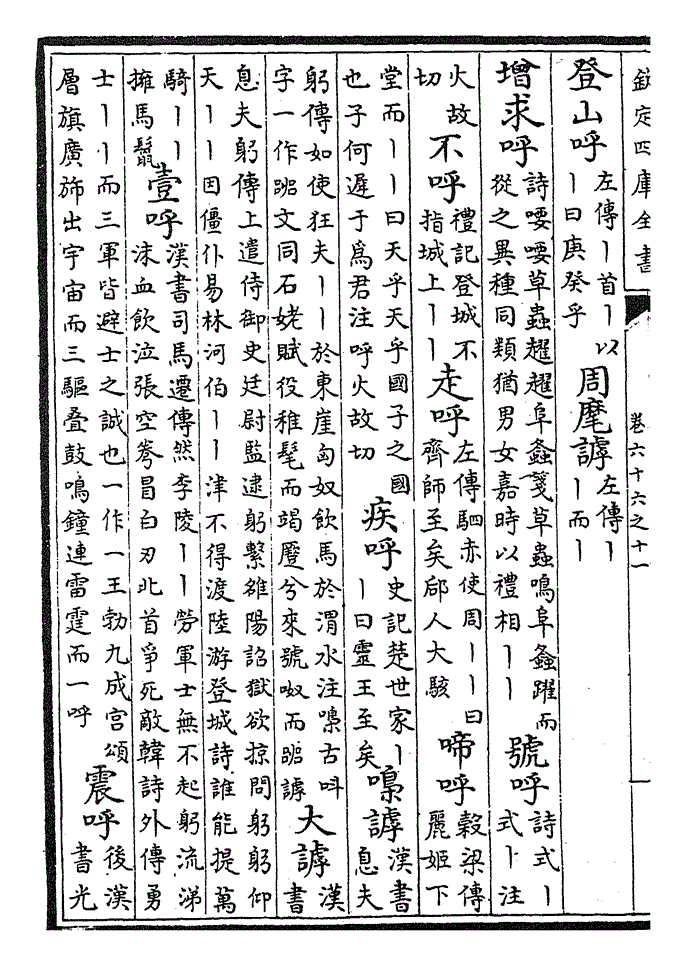 欽定四庫全書 卷六十六之十一 一
登山呼 左傳｜首｜以｜曰庚癸乎 周麾謼 左傳｜｜而｜
增求呼 詩喓喓草蟲趯趯阜螽箋草蟲鳴阜螽躍而從之異種同類猶男女嘉時以禮相｜｜ 號呼 詩式｜式｜注
火故切 不呼 禮記登城不指城上｜｜ 走呼 左傳駟赤使周｜｜曰齊師至矣郈人大駭 啼呼 穀梁傳麗姬下
堂而｜｜曰天乎天乎國子之國也子何遲于爲君注呼火故切 疾呼 史記楚世家｜｜曰靈王至矣 嘄謼 漢書息夫
躬傳如使狂夫｜｜於東崖匈奴飲馬於渭水注嘄古呌字一作文同石姥賦役稚髦而竭蹷兮來號呶而謼 大謼 漢書
息夫躬傳上遣侍御史廷尉監逮躬繫雒陽詔獄欲掠問躬躬仰天｜｜因僵仆易林河伯｜｜津不得渡陸游登城詩誰能提萬
騎｜｜擁馬鬣 壹呼 漢書司馬遷傳然李陵｜｜勞軍士無不起躬流涕沬血飲泣張空弮冒白刃北首爭死敵韓詩外傳勇
士｜｜而三軍皆避士之誠也一作一王勃九成宮頌層旗廣斾出宇宙而三驅叠鼓鳴鐘連雷霆而一呼 震呼 後漢書光